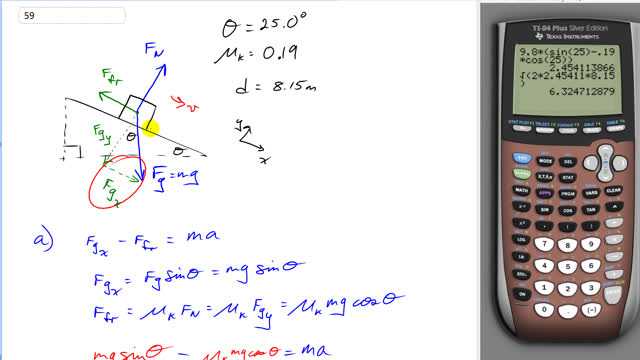 59
θ = 25.0°
μk = 0.19
d = 8.15m
FN
Ffr
v
y
x
θ
θ
Fgy
Fgx
Fg = mg
a) Fgx - Ffr = ma
Fgx = Fg sinθ = mg sinθ
Ffr = μk FN = μk Fgy = μk mg cosθ
mg sinθ - μk mg cosθ = ma
TI-84 Plus Silver Edition
TEXAS INSTRUMENTS
9.8*(sin(25)-.19
*cos(25))
2.454113866
√(2*2.45411*8.15
)
6.324712879
STAT PLOT TBLSET FORMAT CALC TABLE
MODE DEL
X,T,θ,n STAT
MATH APPS PRGM VARS CLEAR
SIN COS TAN
LOG 7 8 9
LN 4 5 6
1 2 3
ON 0 . (-)